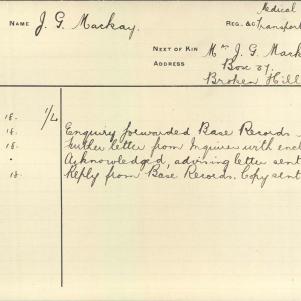 Medical
NAME J. G. Mackay. REG. &C Transport
NEXT OF KIN Mrs J. G. Mack
ADDRESS Box 07.
Broken Hill
18. 1/L
18. Enquiry forwarded Base Records
18. Further letter from Inquirer with encl
" Acknowledged, advising letter sent
18. Reply from Base Records. Copy sent